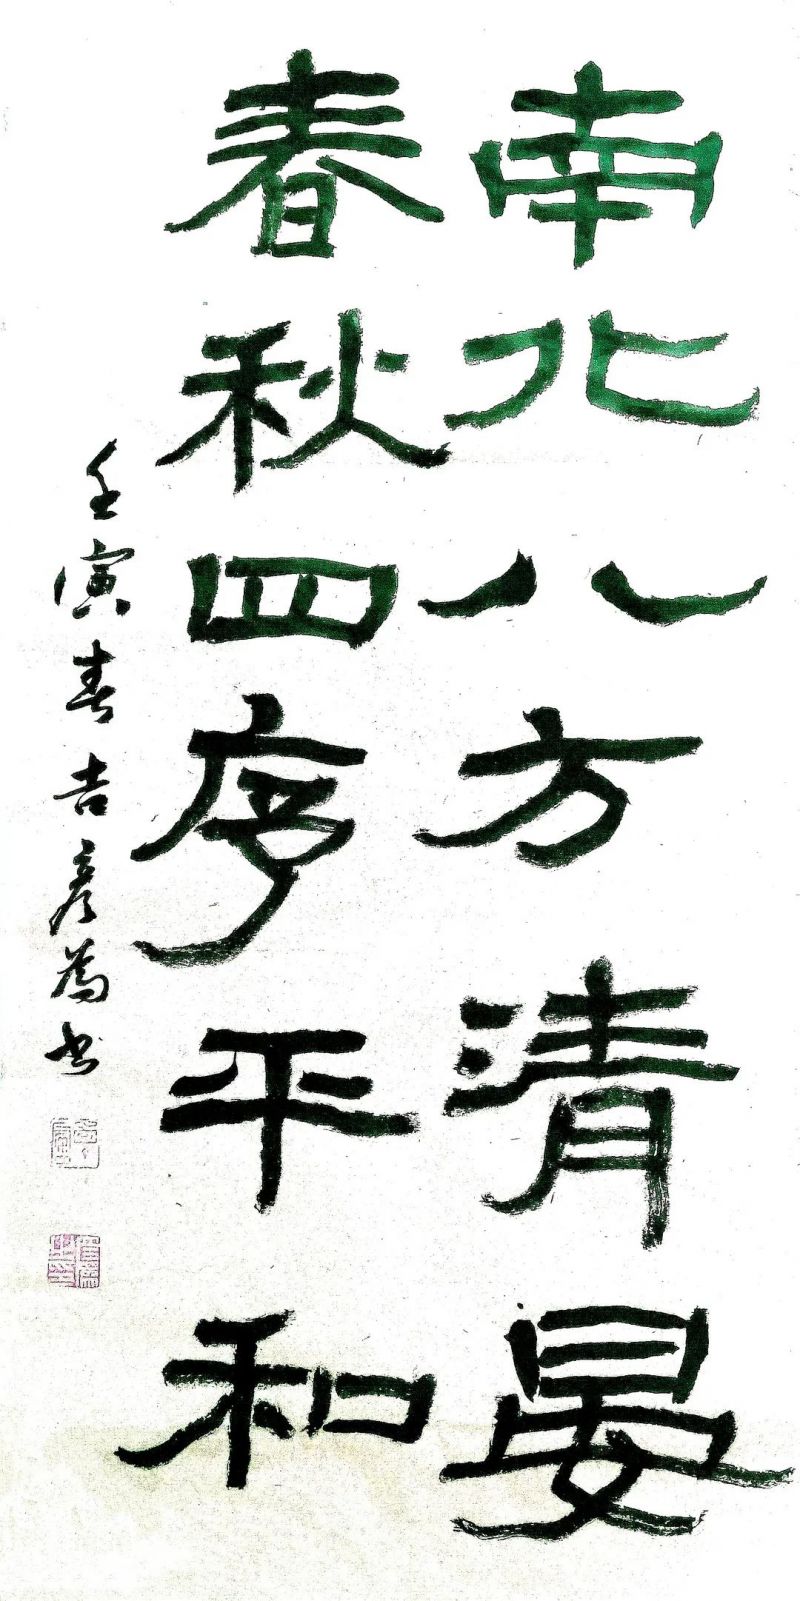 南北八方清晏
春秋四序平和
壬寅春吉彦為书